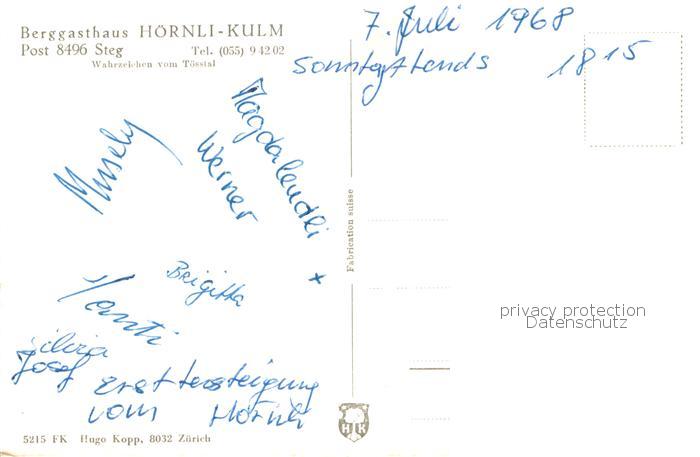 Berggasthaus HÖRNLI-KULM
Post 8496 Steg Tel. (055) 9 42 02
Wahrzeichen vom Tösstal
7. Juli 1968
18 15
Magdalendli
Werner
Brigitta
Josef
Erstbersteigung
vom Hörnli
Fabrication suisse
HK
privacy protection
Datenschutz
5215 FK Hugo Kopp, 8032 Zürich